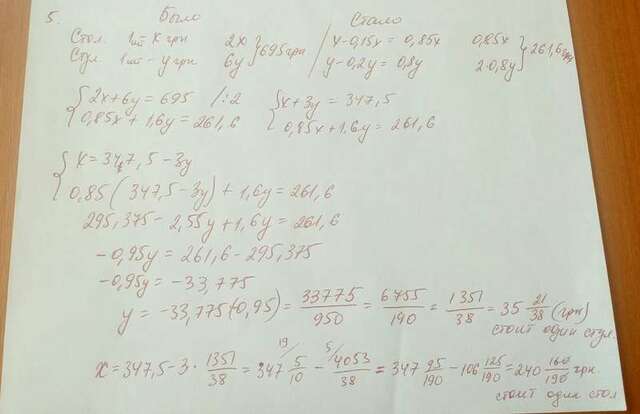 5. Было Стало
Стол. 1шт x грн 2x } 695 грн / x-0,15x = 0,85x 0,85x } 261,6 грн
Стул. 1шт - y грн 6y y-0,2y = 0,8y 2·0,8y
{ 2x+6y = 695 /:2 { x+3y = 347,5
0,85x + 1,6y = 261,6 0,85x+1,6y = 261,6
{ x = 347,5-3y
0,85(347,5-3y) + 1,6y = 261,6
295,375 - 2,55y + 1,6y = 261,6
-0,95y = 261,6 - 295,375
-0,95y = -33,775
y = -33,775:(-0,95) = 33775/950 = 6755/190 = 1351/38 = 35 21/38 (грн)
стоит один стул.
x = 347,5 - 3 · 1351/38 = 347 5/10 (19/) - 4053/38 (5/) = 347 95/190 - 106 125/190 = 240 160/190 грн
стоит один стол